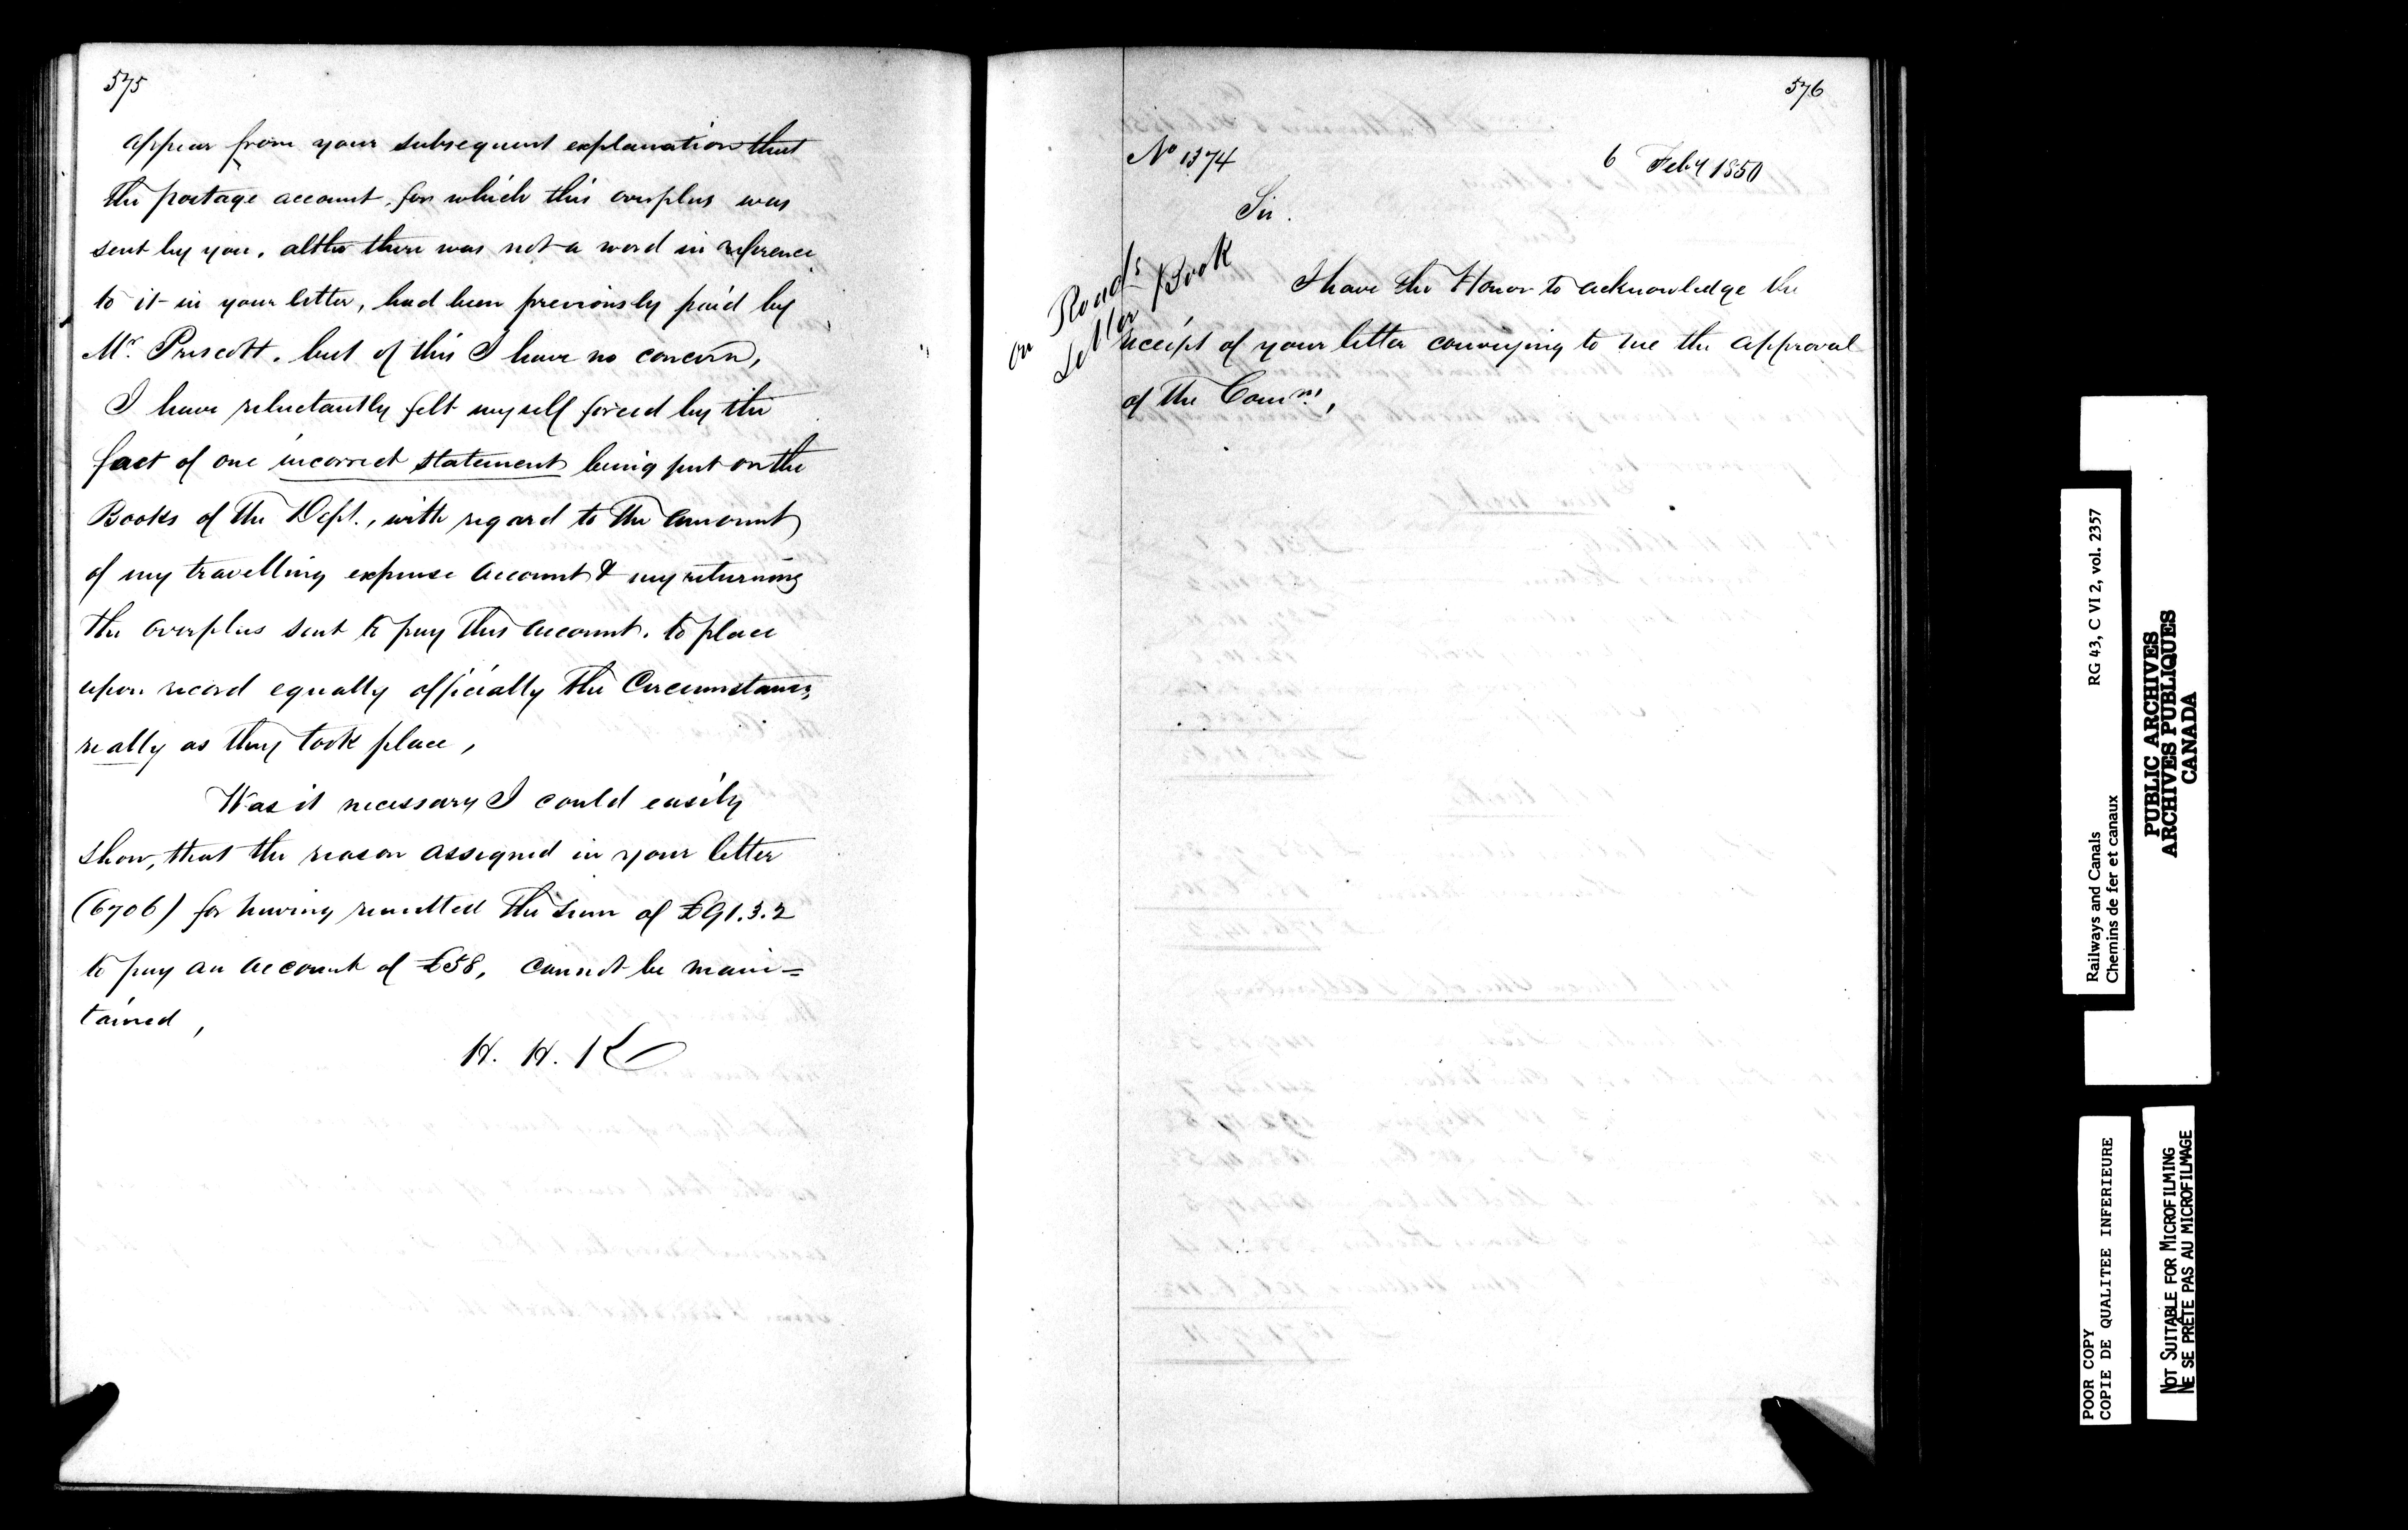 575
appear from your subsequent explanation that
the postage account, for which this overplus was
sent by you, altho there was not a word in reference
to it in your letter, had been previously paid by
Mr. Prescott, but of this I have no concern,
I have reluctantly felt myself forced by the
fact of one incorrect statement being put on the
Books of the Dept., with regard to the amount
of my travelling expense account & my returning
the overplus sent to pay this account, to place
upon record equally officially the Circumstances,
really as they took place,
Was it necessary I could easily
show, that the reason assigned in your letter
(6706) for having remitted the sum of £91.3.2
to pay an account of £58, cannot be main=
tained,
H. H. K
576
No 1374
6 Feby 1850
Sir.
on Roads
Letter Book
I have the Honor to acknowledge the
receipt of your letter conveying to me the approval
of the Comrs,
Railways and Canals
Chemins de fer et canaux
RG 43, C VI 2, vol. 2357
PUBLIC ARCHIVES
ARCHIVES PUBLIQUES
CANADA
POOR COPY
COPIE DE QUALITEE INFERIEURE
NOT SUITABLE FOR MICROFILMING
NE SE PRÊTE PAS AU MICROFILMAGE